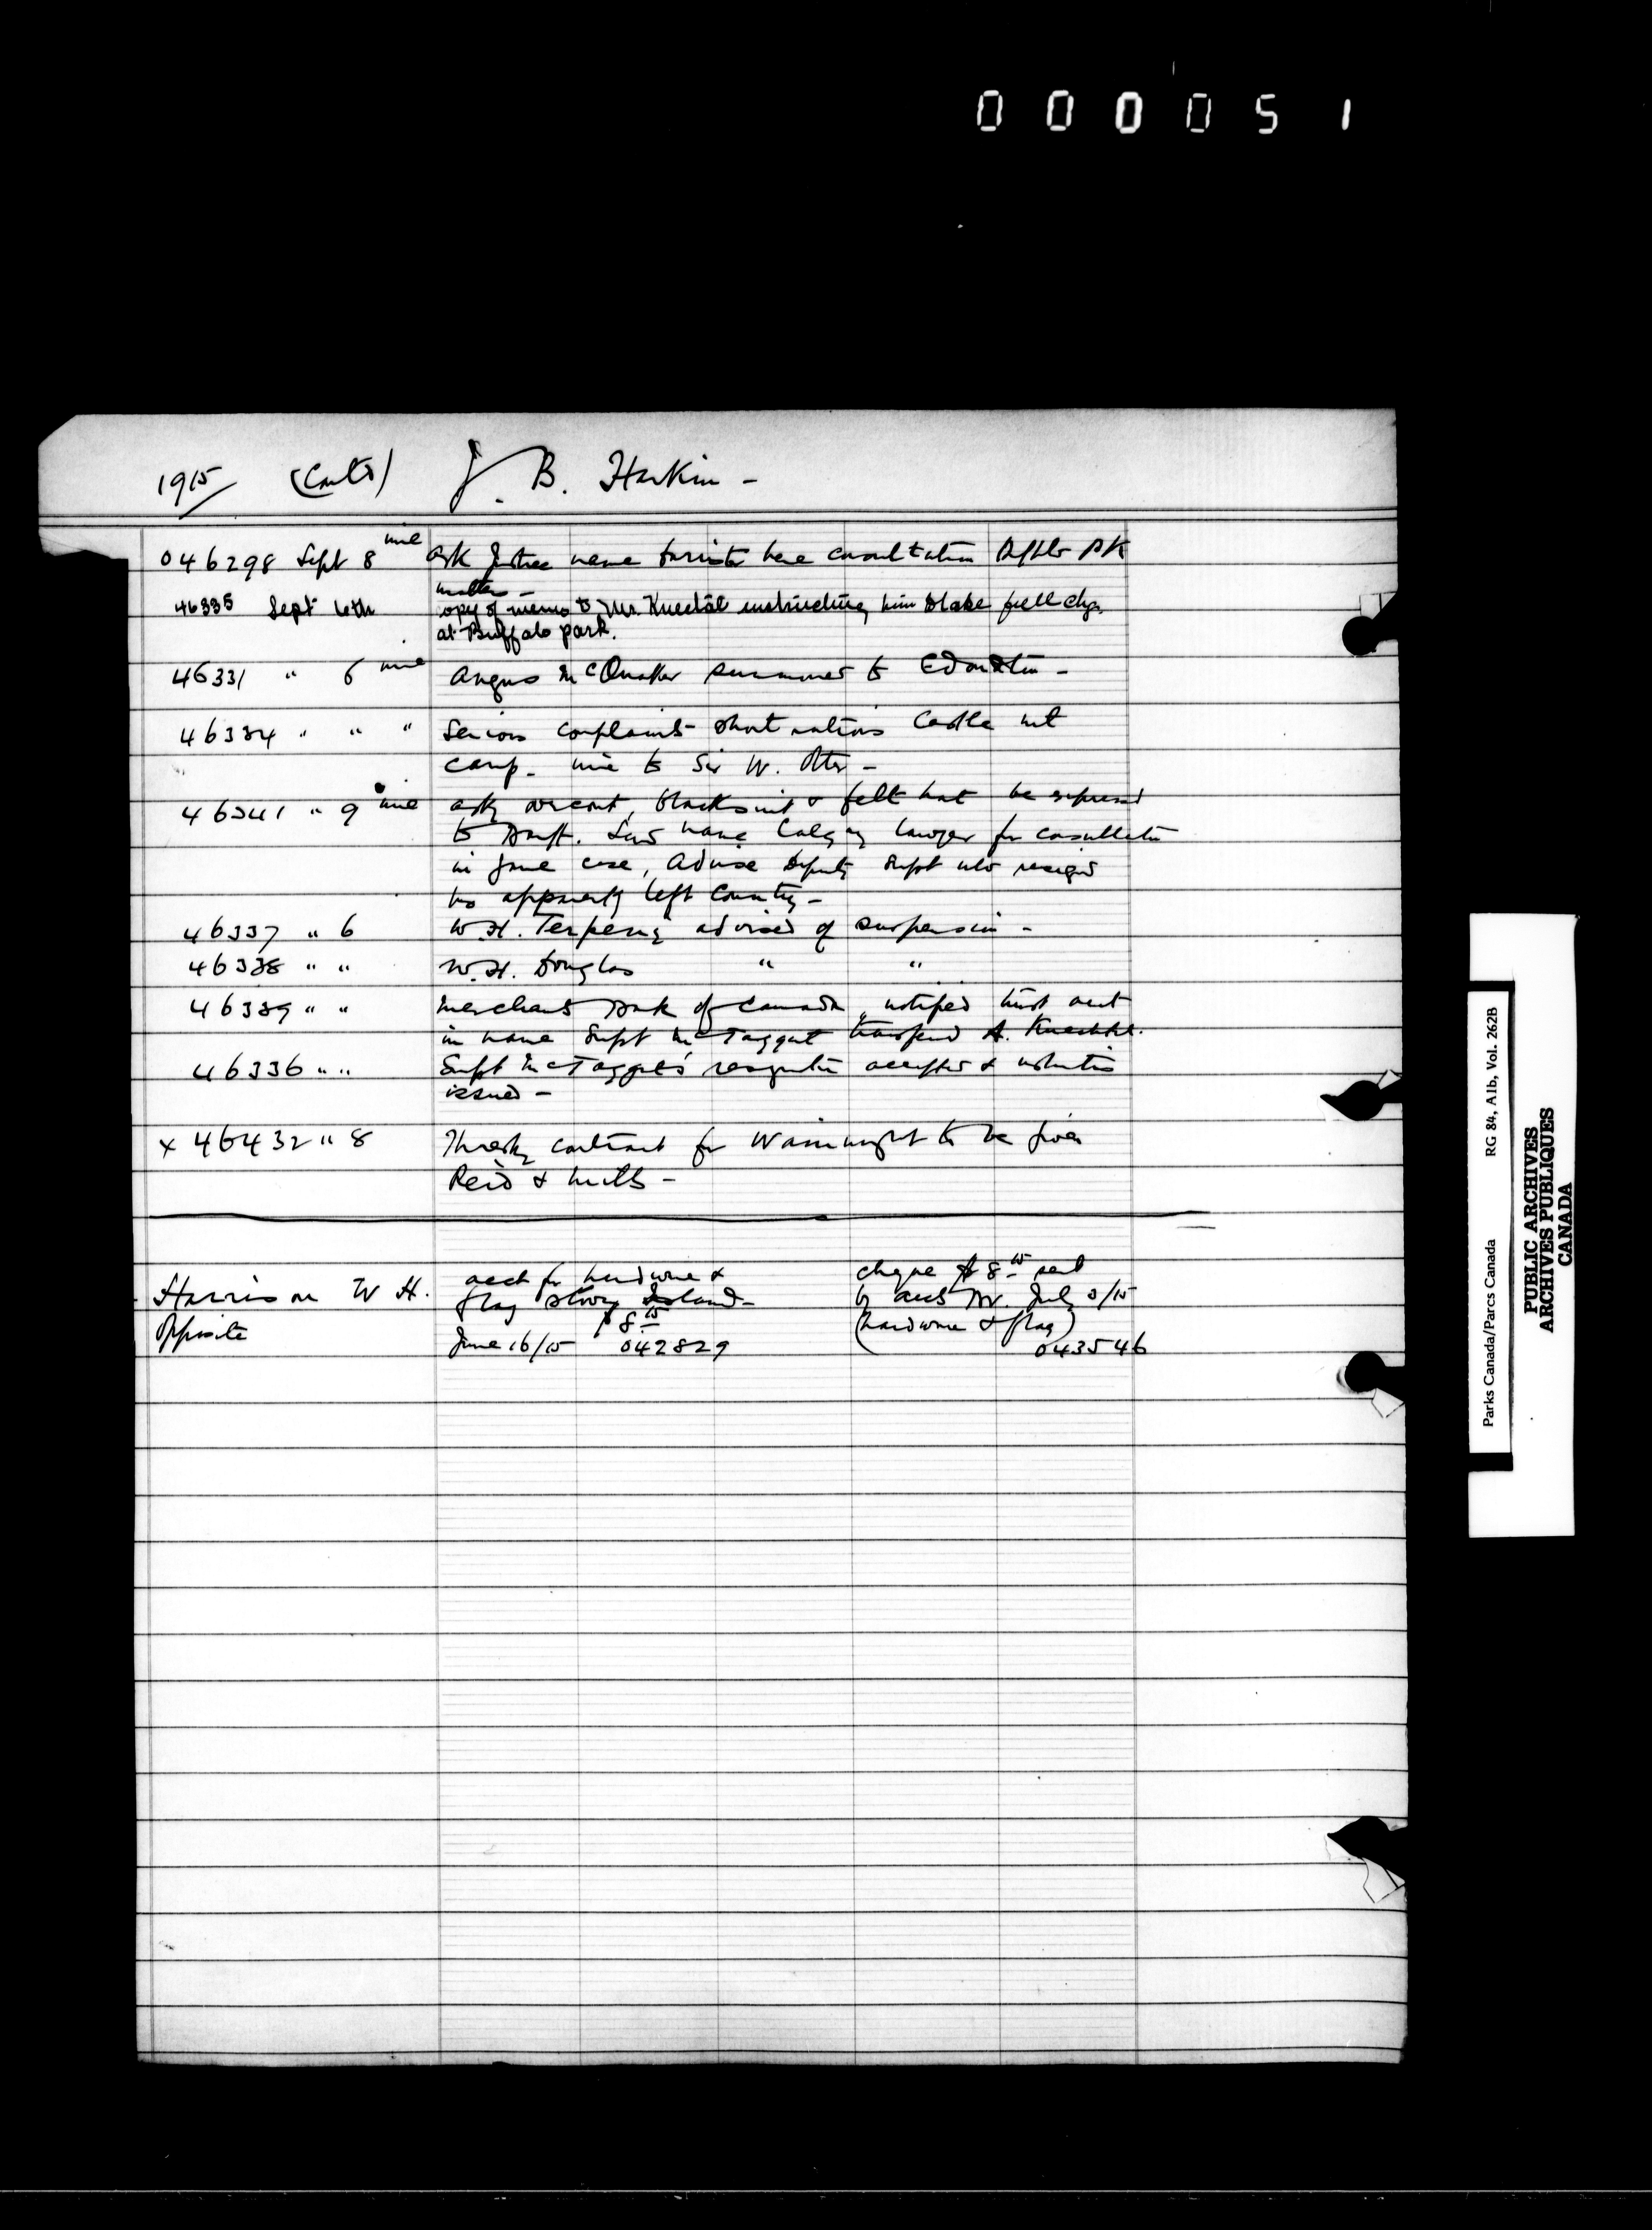 000051
1915 (Contd) J. B. Harkin -
046298 Sept 8 wire ask Justice name barrister here consultation Buffalo Pk
matter -
46335 Sept 6th copy of memo to Mr. Knechtel instructing him to take full chge.
at Buffalo park.
46331 " 6 wire Angus McQuaker summoned to Edmonton -
46334 " " " Serious complaints short rations Castle mt
camp. wire to Sir W. Otter -
46341 " 9 wire ask overcoat, black suit & felt hat be expressed
to Banff. name Calgary lawyer for consultation
in case, Advise Deputy Supt who resigned
has apparently left Country -
46337 " 6 W.H. advised of suspension -
46338 " " W.H. Douglas " "
46339 " " Merchants Bank of Canada notified trust acct
in name Supt McTaggart transferred A. Knechtel.
46336 " " Supt McTaggart's resignation accepted &
issued -
x 46432 " 8 contract for Wainwright to be given
Reid & Mills -
Harrison W H. acct for hardware & cheque $8.15 sent
flag Island - by acct Br. July 3/15
opposite $8.15 (hardware & flag)
June 16/15 042829 043546
Parks Canada/Parcs Canada RG 84, A1b, Vol. 262B
PUBLIC ARCHIVES
ARCHIVES PUBLIQUES
CANADA